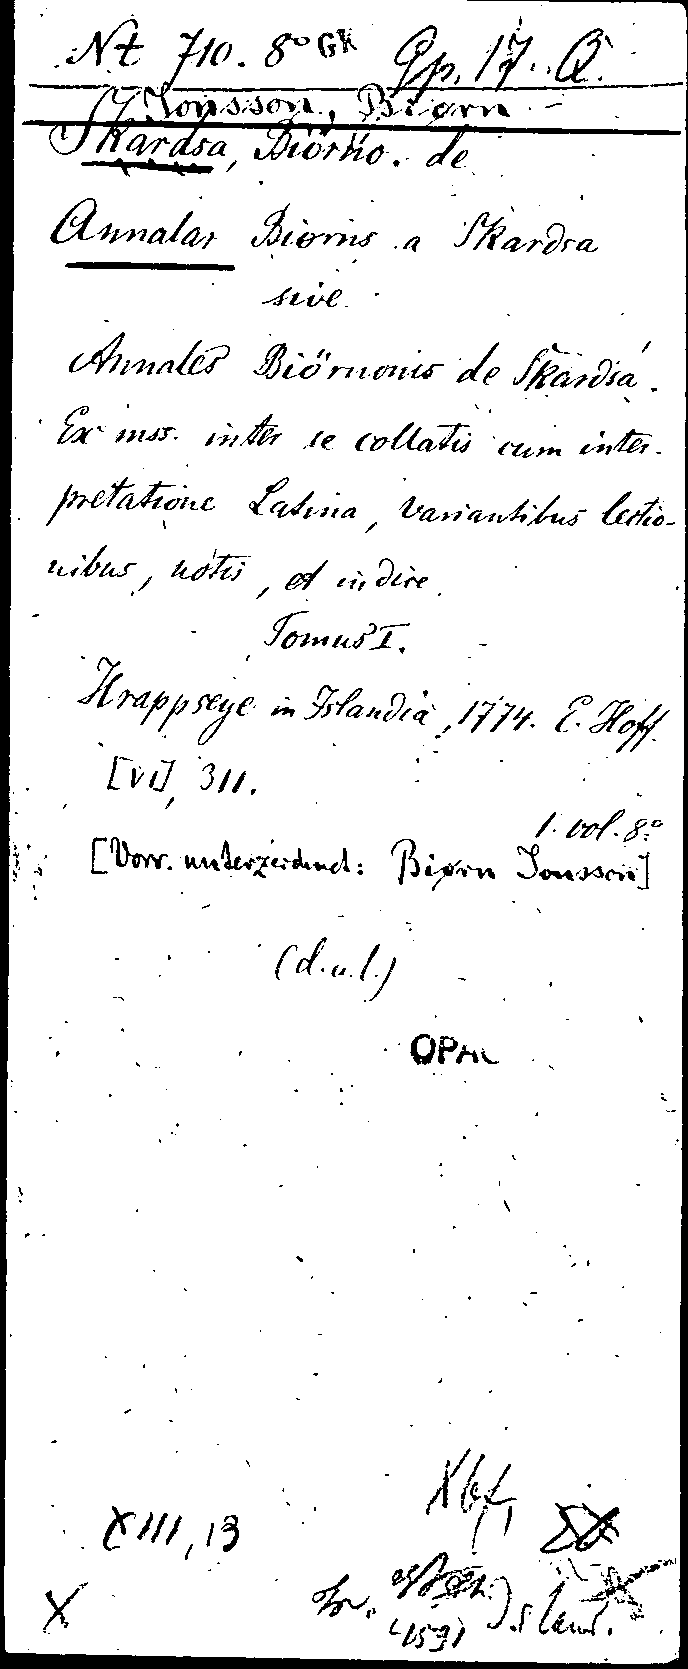 Nt 710. 8° GK Gp. 17. Q.
Jonsson, Biørn
Skardsa, Biörno. de
Annalar Biorns a Skardsa
sive
Annales Biörnonis de Skardsá.
Ex mss. inter se collatis cum inter-
pretatione Latina, variantibus lectio-
nibus, notis, et indice
Tomus I.
Hrappseye in Islandia, 1774. E. Hoff.
[VI], 311.
1. vol. 8°
[Vorr. unterzeichnet: Biørn Jonsson]
(d. u. l.)
OPAC
XIII, 13
X
Island.